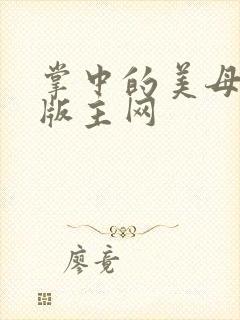 掌中的美母
版主网
廖竟